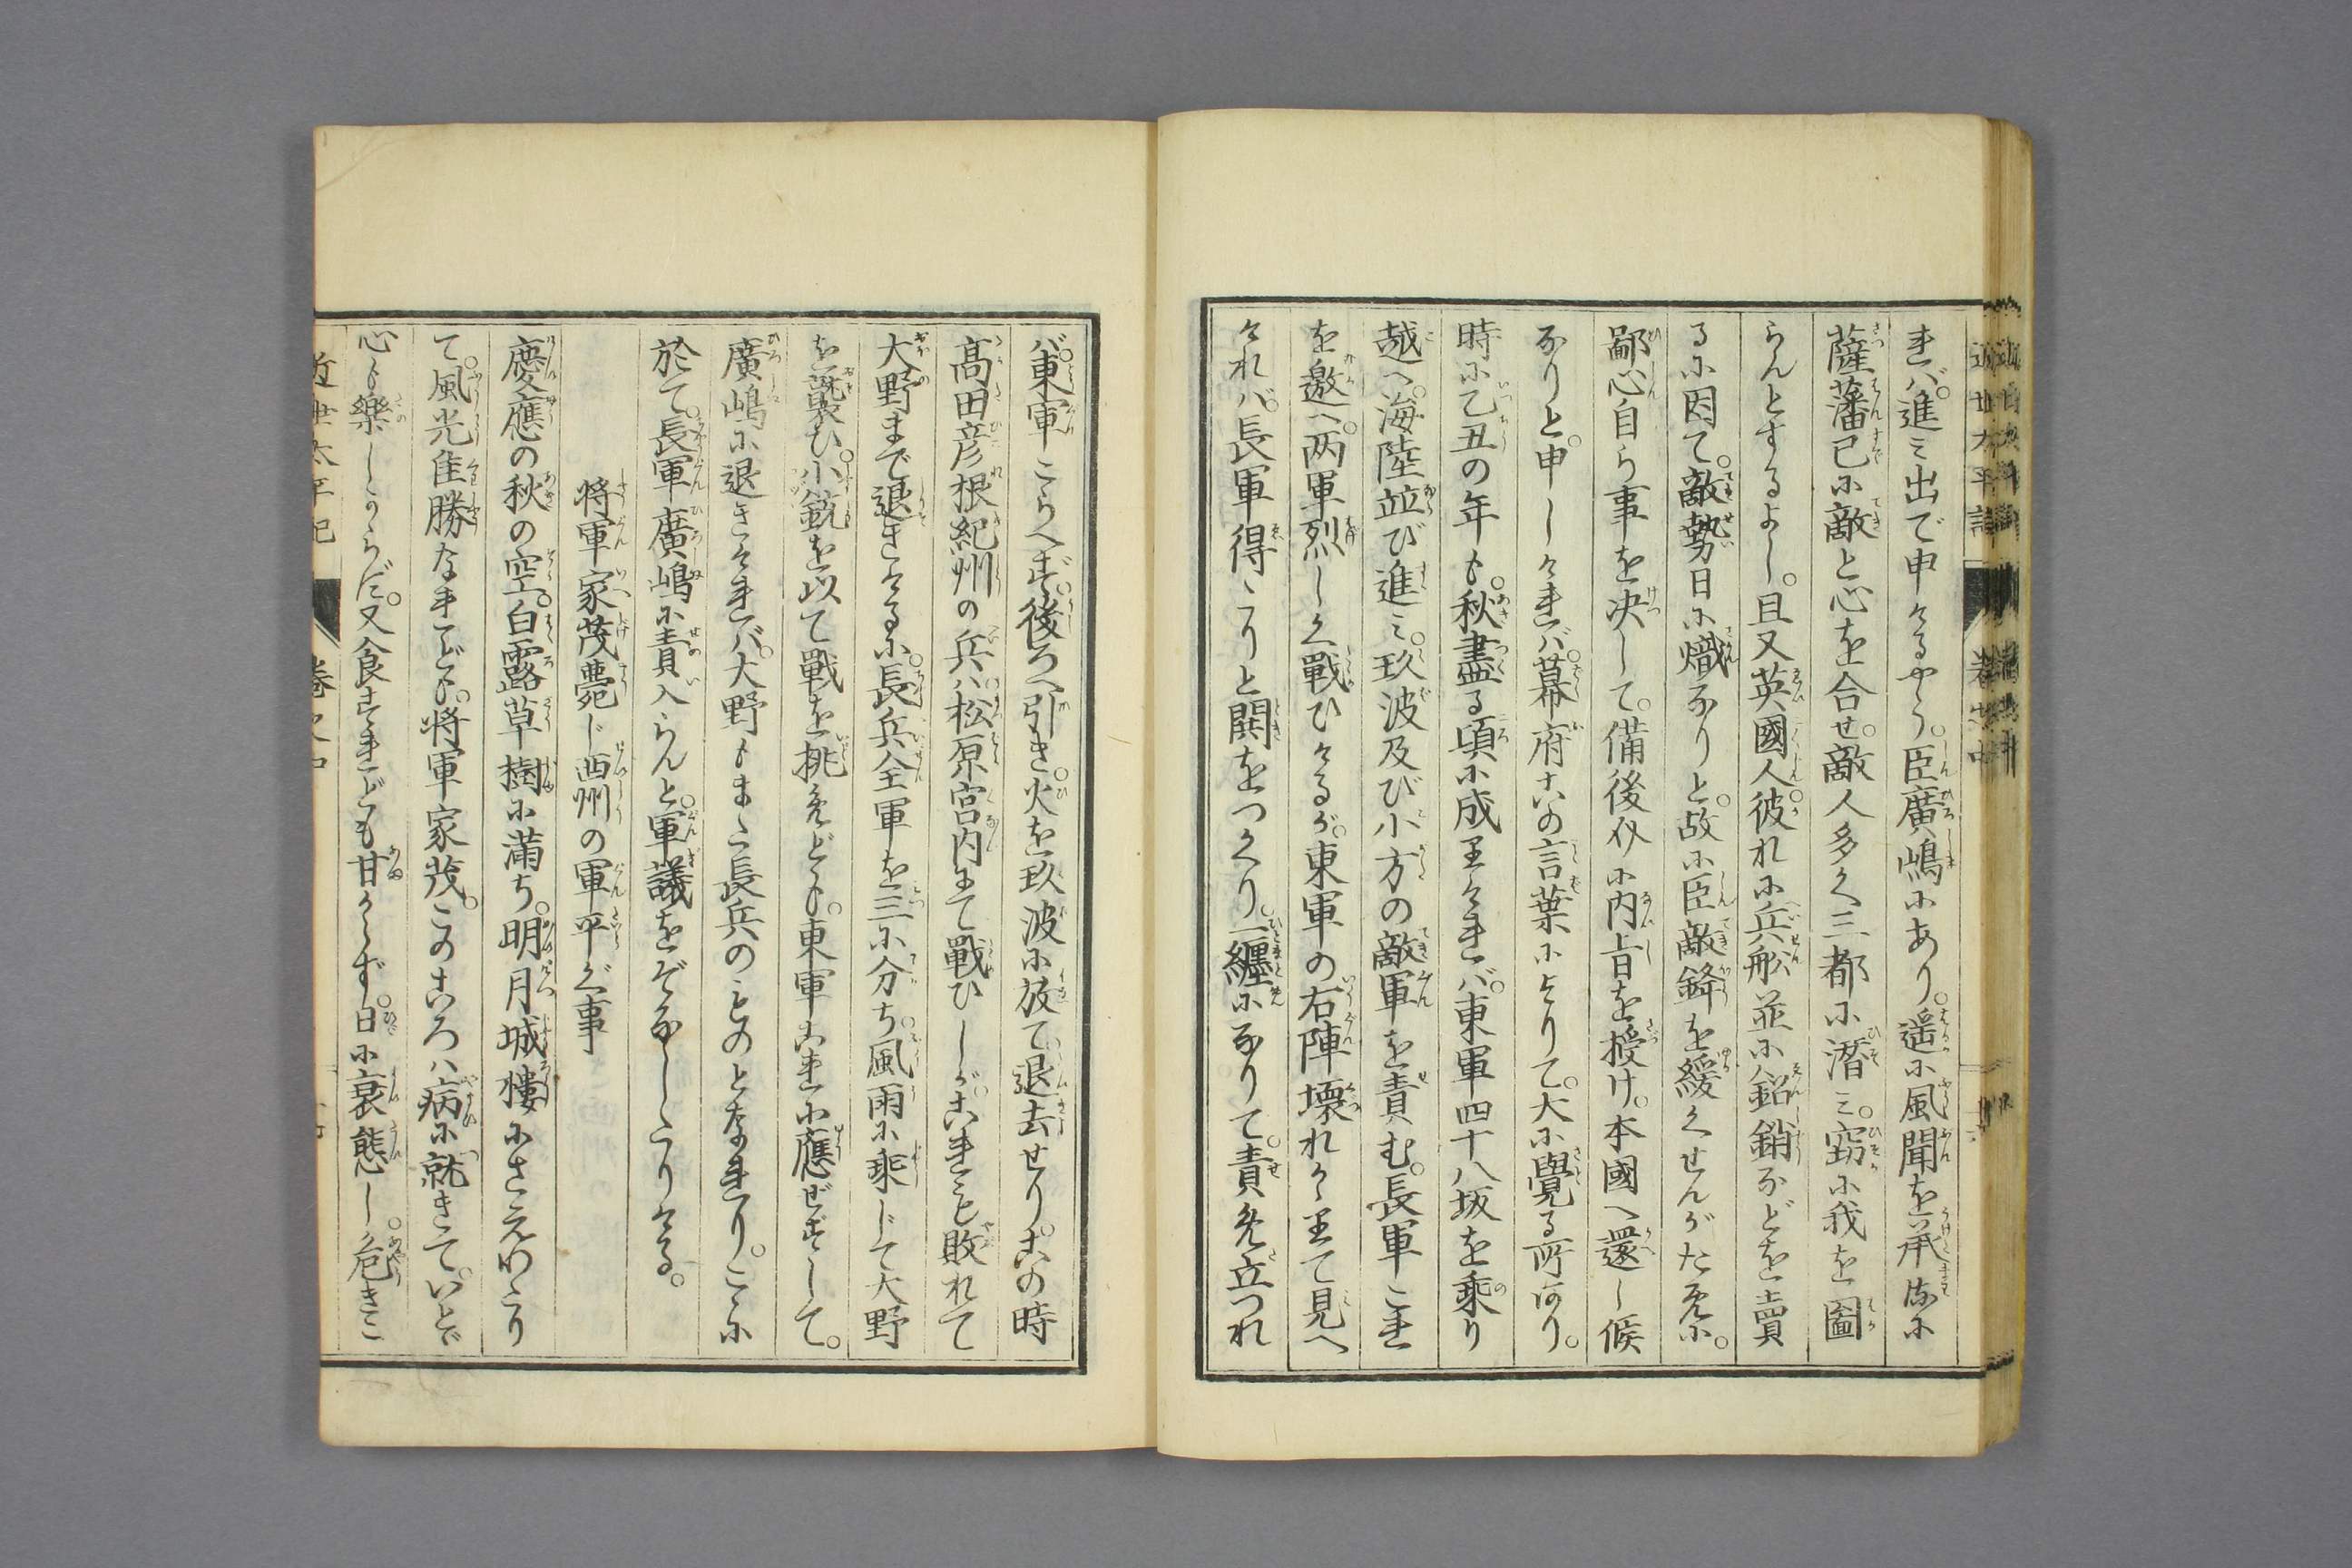 れバ。進ミ出で申けるやう。臣廣嶋にあり。遥に風聞を承るに
薩藩已に敵と心を合せ。敵人多く三都に潜ミ。窃に我を圖
らんとするよし。且又英國人。彼れに兵舩並に銘銷などを賣
るに因て。敵勢日に熾なりと。故に臣敵鋒を緩くせんがために。
鄙心自ら事を决して。備後介に内旨を授け。本國へ還し候
なりと。申しければ。幕府この言葉によりて。大に覺る所あり。
時に乙丑の年も。秋盡る頃に成りければ。東軍四十八坂を乘り
越へ。海陸竝び進ミ。玖波及び小方の敵軍を責む。長軍これ
を邀へ。两軍烈しく戰ひけるが。東軍の右陣壞れかゝりて見へ
ければ。長軍得たりと鬨をつくり。一纏になりて。責め立つれ
バ。東軍こらへず。後ろへ引き。火を玖波に放て。退去せり。この時
髙田彦根紀州の兵ハ。松原宮内にて戰ひしが。これも敗れて
大野まで退きけるに。長兵全軍を三に分ち。風雨に乘じて大野
を襲ひ。小銃を以て戰を挑めども。東軍これに應ぜずして。
廣嶋に退きければ。大野もまた長兵のものとなれり。こゝに
於て。長軍廣嶋に責入らんと。軍議をぞなしたりける。
将軍家茂薨じ西州の軍平ぐ事
慶應の秋の空。白露草樹に満ち。明月城樓にさえわたり
て。風光佳勝なれども。将軍家茂。このころハ病に就きて。いとゞ
心も樂しからず。又食すれども甘からず。日に衰態し。危きこ
近世太平記
巻之中